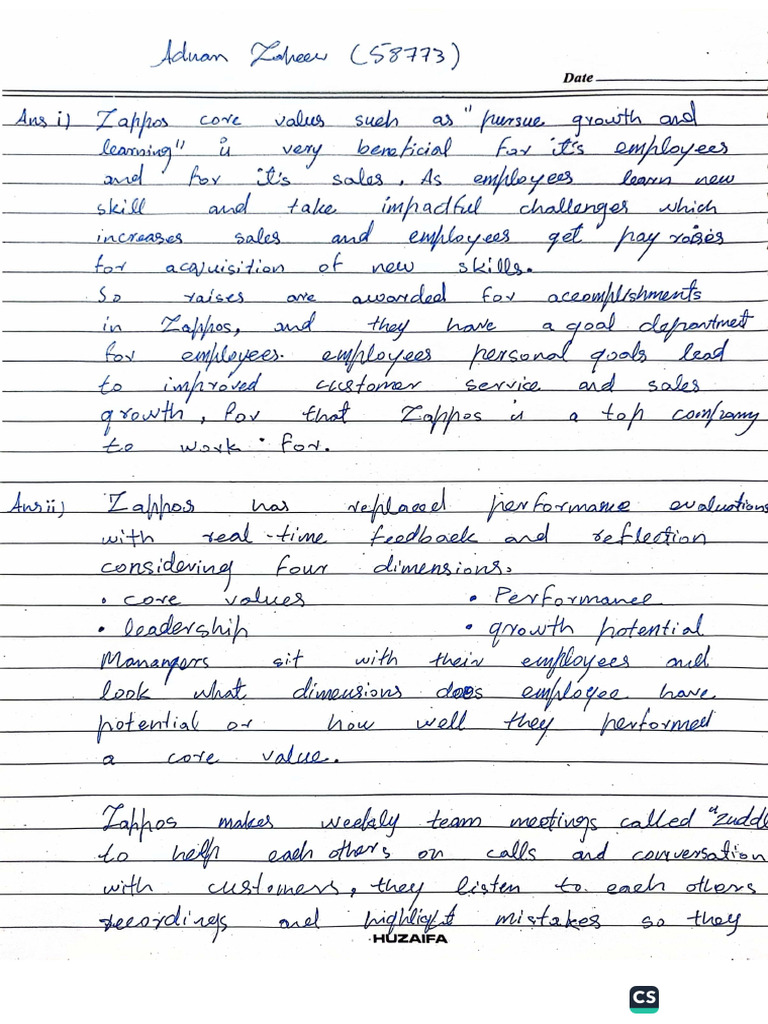 Adnan Zaheer (58773)
Date
Ans i) Zappos core values such as "pursue growth and
learning" is very beneficial for it's employees
and for it's sales. As employees learn new
skill and take impactful challenges which
increases sales and employees get pay raises
for acquisition of new skills.
So raises are awarded for accomplishments
in Zappos, and they have a goal department
for employees. employees personal goals lead
to improved customer service and sales
growth, for that Zappos is a top company
to work for.
Ans ii) Zappos has replaced performance evaluations
with real-time feedback and reflection
considering four dimensions.
• core values • Performance
• leadership • growth potential
Manangers sit with their employees and
look what dimensions does employee have
potential or how well they performed
a core value.
Zappos makes weekly team meetings called "zuddl
to help each others on calls and conversation
with customers, they listen to each others
recordings and highlight mistakes so they
HUZAIFA
CS